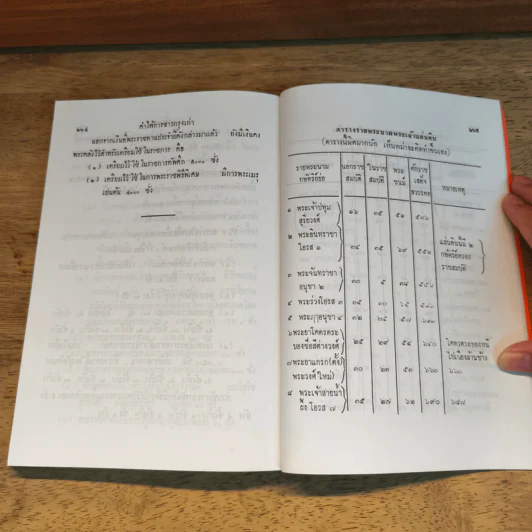 ๒๒๔
คำให้การชาวกรุงเก่า
นอกจากเงินที่พระราชทานประจำปีดังกล่าวมาแล้ว ยังมีเงินคง
พระคลังไว้สำหรับเตรียมใช้ในราชการ คือ
(๑) เตรียมไว้ใช้ในราชการทัพศึก ๕๐๐๐ ชั่ง
(๒) เตรียมไว้ใช้ในการพระราชพิธีพิเศษ มีการพระเมรุ
เป็นต้น ๕๐๐๐ ชั่ง
ตารางรายพระนามพระเจ้าแผ่นดิน
๒๒๕
(ตารางนี้ผิดมากนัก เห็นพม่าจะคิดทำขึ้นเอง)
รายพระนาม กษัตริย์ย่อ
นอกราช สมบัติ
ในราช สมบัติ
พระ ชนม์
ศักราช
หมายเหตุ
๑ พระเจ้าปทุม
สุริยวงศ์ ๑๖ ๓๕ ๕๑
๒ พระอินทราชา
โอรส ๑ ๓๔ ๓๕ ๖๙ ๕๕๑
แผ่นดินนี้มี ๒
กษัตริย์ครอง
ราชสมบัติ
๓ พระจันทราชา
อนุชา ๒ ๓๐ ๘ ๓๘
๔ พระร่วงโอรส ๓ ๓๕ ๓๐ ๖๕
๕ พระฦๅอนุชา ๔ ๓๒ ๒๕ ๕๗
๖ พระยาโคตรตระ
บองชื่อสืต่างวงศ์ ๒๕ ๒๙ ๕๔ ๖๔๐
๗ พระยาแกรก (ตั้ง
พระวงศ์ใหม่) ๓๐ ๒๓ ๕๓ ๖๖๐
๘ พระเจ้าสายน้ำ
ผึ้ง โอรส ๗ ๓๕ ๒๗ ๖๒ ๖๙๐ ๖๔๗